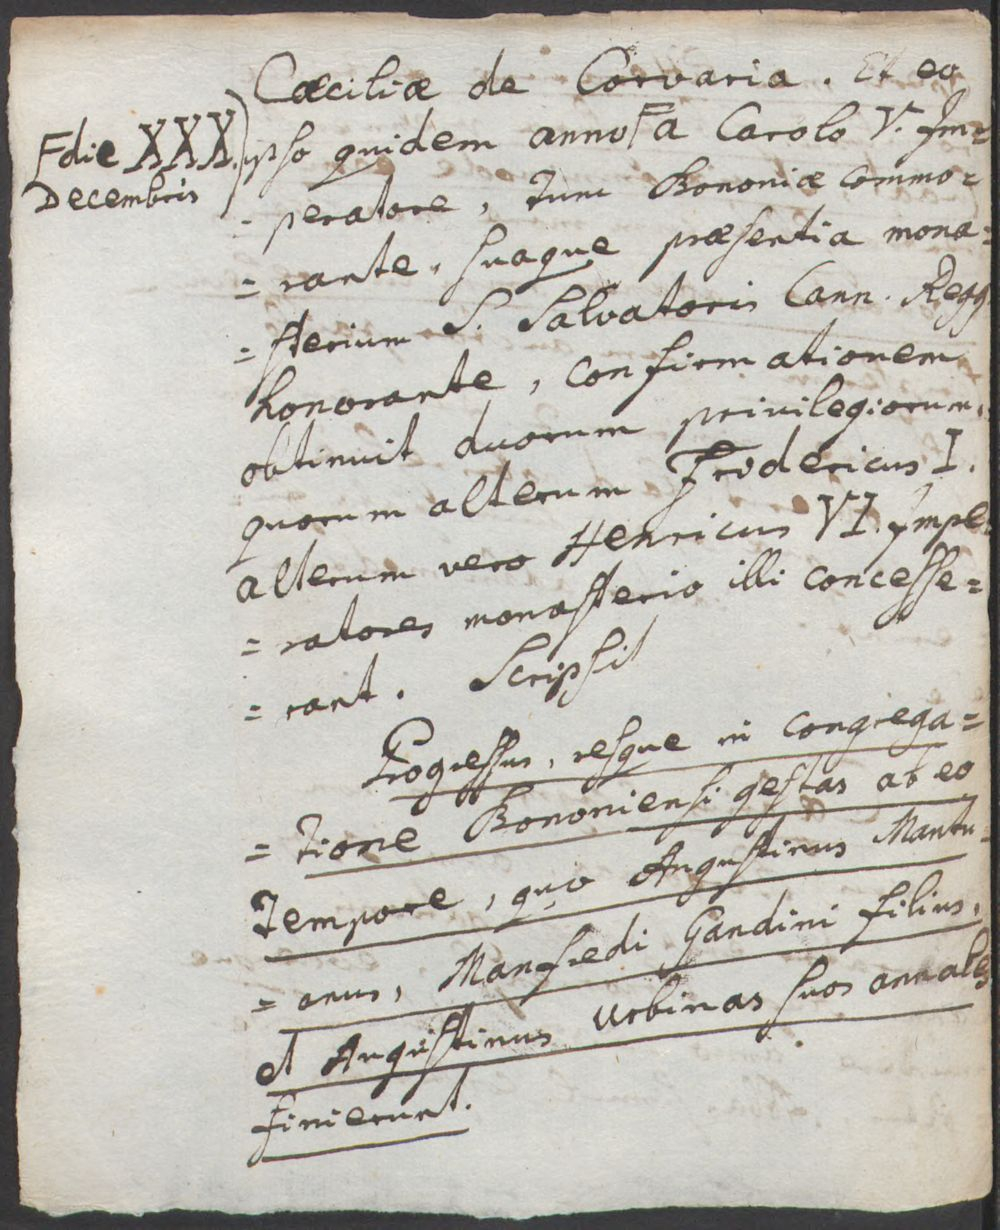 Cæciliæ de Corvaria. Et eo
F die XXX
Decembris
ipso quidem anno F a Carolo V. Im=
= peratore, tum Bononiæ commo=
= rante, suaque præsentia mona=
= sterium S. Salvatoris Cann. Regg
honorante, confirmationem
obtinuit duorum privilegiorum,
quorum alterum Fridericus I.
alterum vero Henricus VI. Impe=
= ratores monasterio illi concesse=
= rant. Scripsit
Progressus, resque in congrega=
= tione Bononiensi gestas ab eo
tempore, quo Augustinus Mantu=
= anus, Manfredi Gandini filius,
et Augustinus Urbinas suos annales
finierunt.